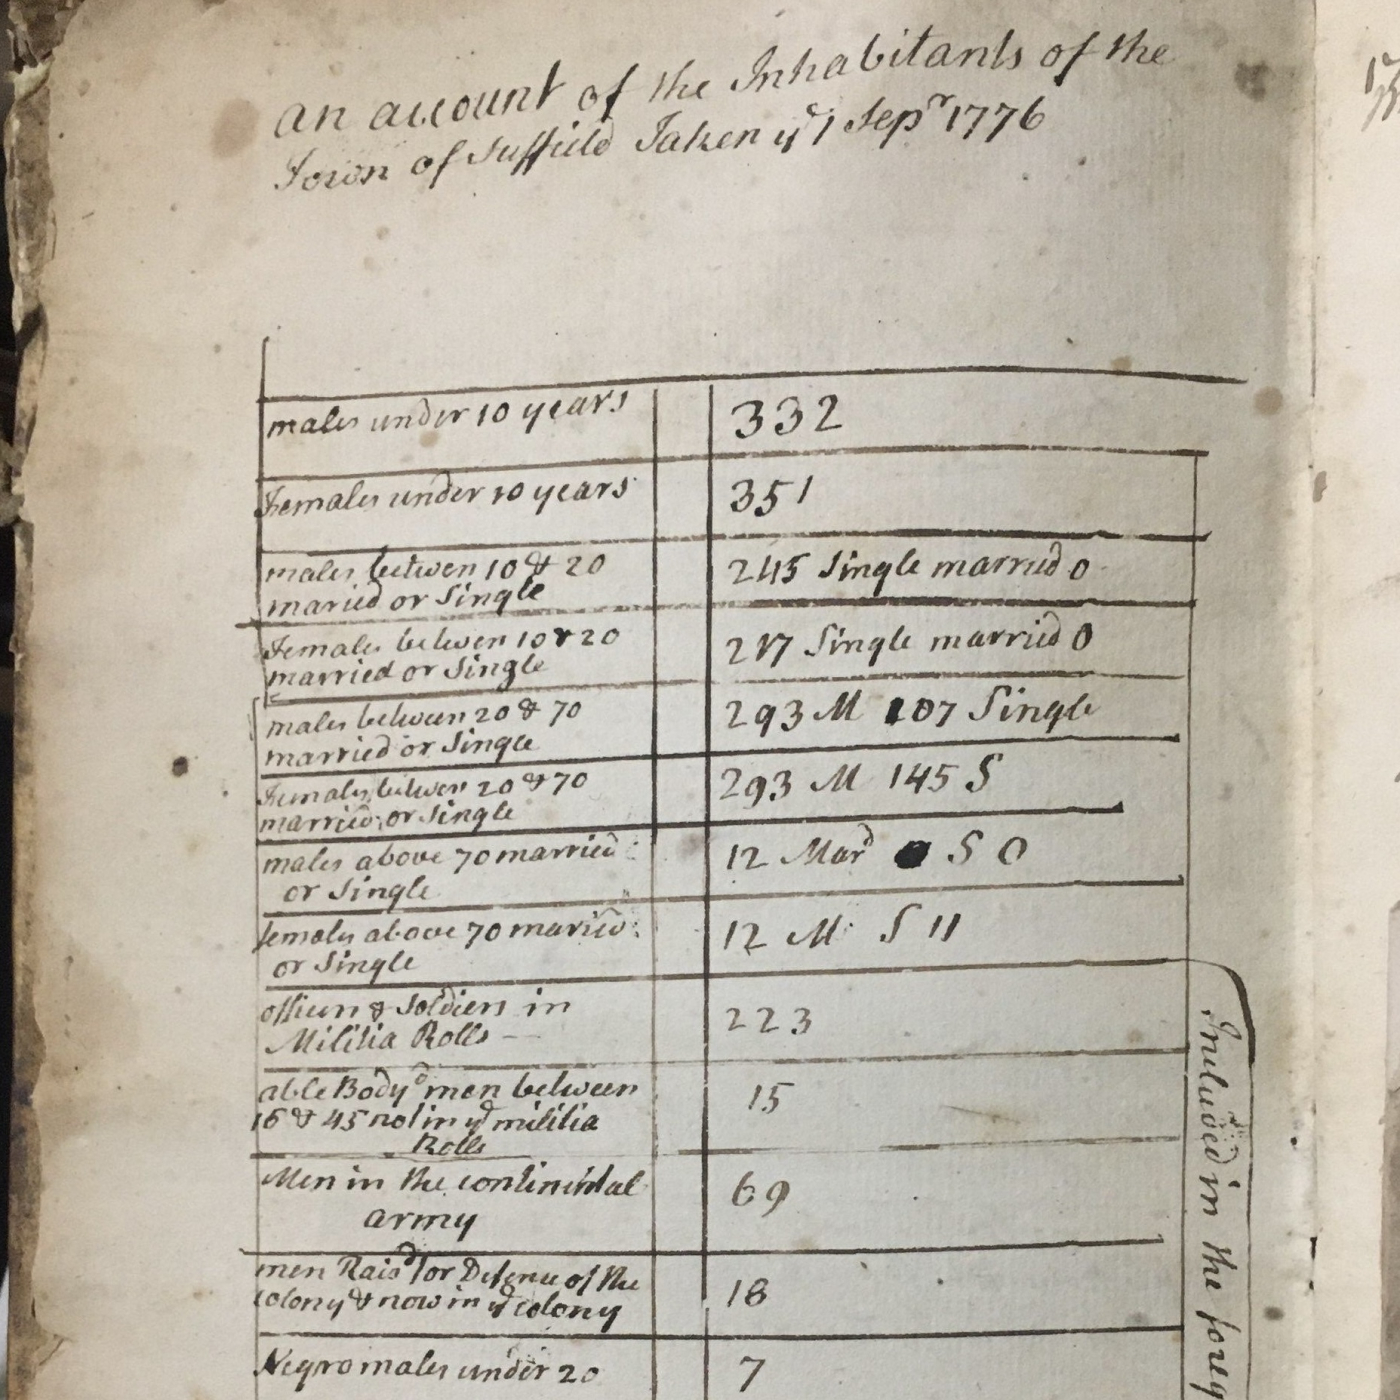 an account of the Inhabitants of the
Town of Suffield Taken ye 1 Sepr 1776
males under 10 years 332
Females under 10 years 351
males between 10 & 20
maried or Single 245 Single married 0
Females between 10 & 20
married or Single 217 Single married 0
males between 20 & 70
married or Single 293 M 107 Single
Females between 20 & 70
married or Single 293 M 145 S
males above 70 married
or Single 12 Mard S 0
females above 70 maried
or Single 12 M S 11
officers & Soldiers in
Militia Rolls — 223
able Bodyd men between
16 & 45 not in ye militia
Rolls 15
Men in the continental
army 69
men Raisd for Defence of the
colony & now in ye colony 18
Negro males under 20 7
Included in the foreg